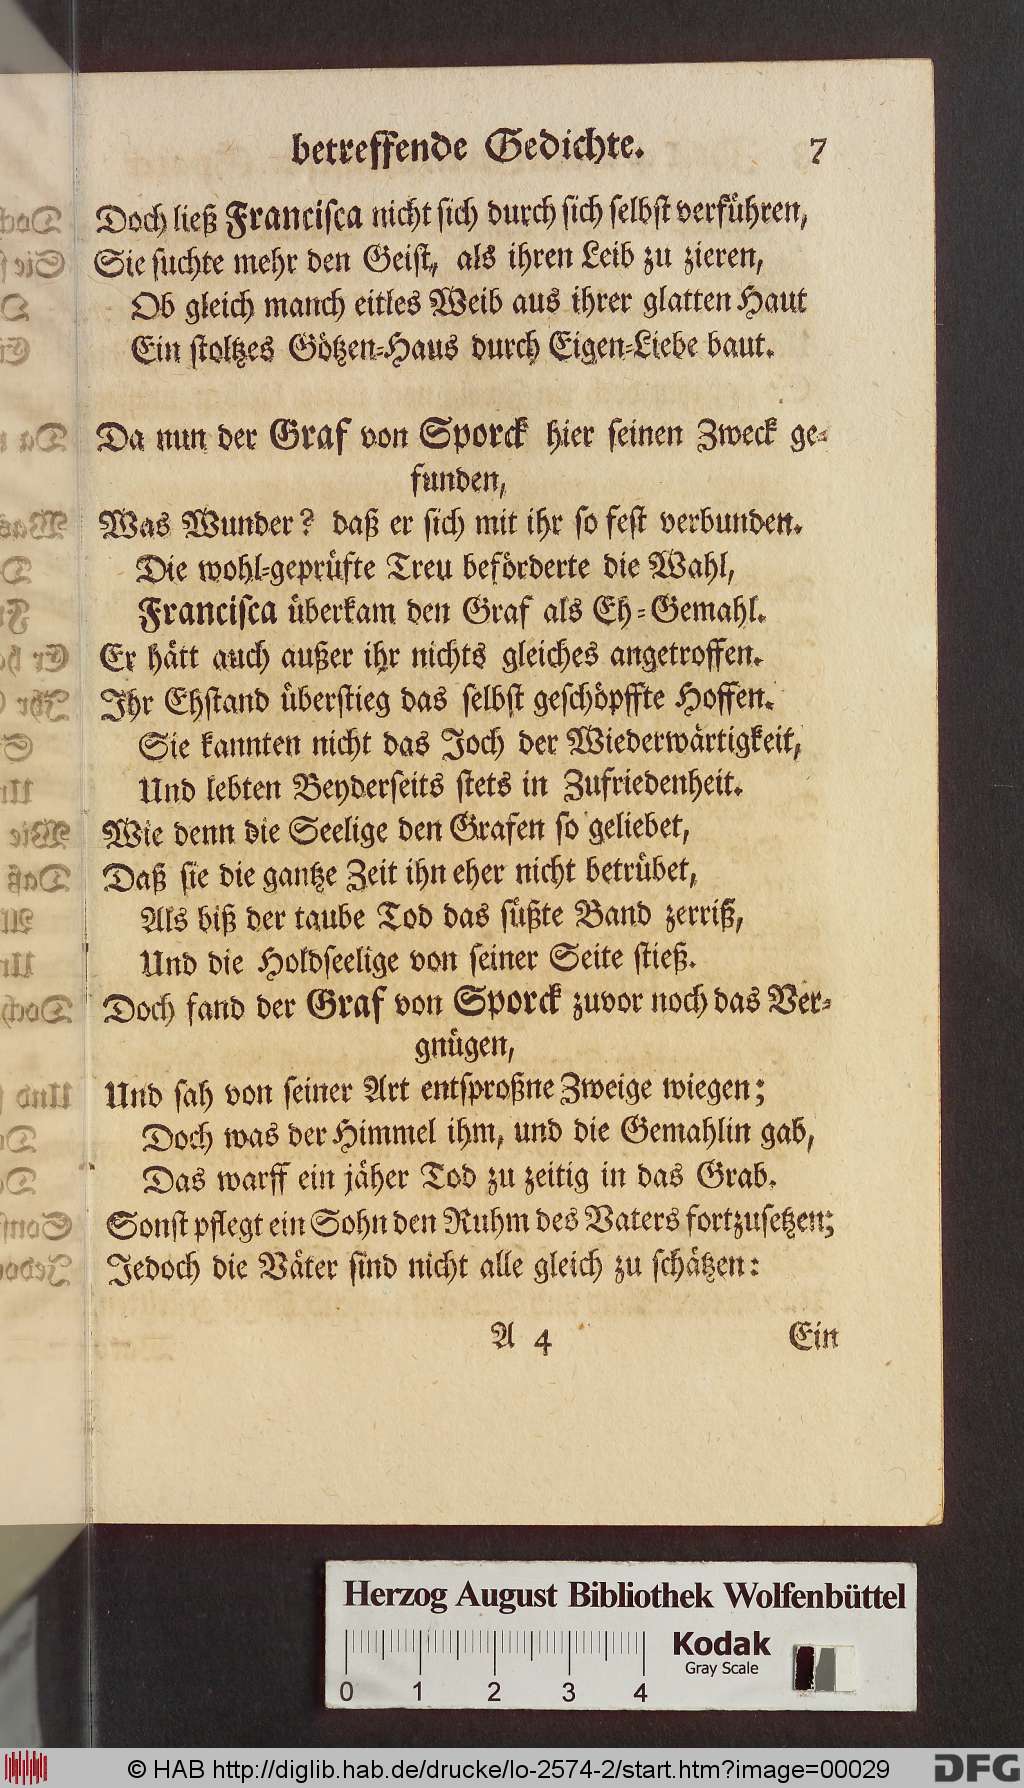 betreffende Gedichte. 7
Doch ließ Franciſca nicht ſich durch ſich ſelbſt verführen,
Sie ſuchte mehr den Geiſt, als ihren Leib zu zieren,
Ob gleich manch eitles Weib aus ihrer glatten Haut
Ein ſtoltzes Götzen-Haus durch Eigen-Liebe baut.
Da nun der Graf von Sporck hier ſeinen Zweck ge-
funden,
Was Wunder? daß er ſich mit ihr ſo feſt verbunden.
Die wohl-geprüfte Treu beförderte die Wahl,
Franciſca überkam den Graf als Eh-Gemahl.
Er hätt auch außer ihr nichts gleiches angetroffen.
Ihr Ehſtand überſtieg das ſelbſt geſchöpffte Hoffen.
Sie kannten nicht das Joch der Wiederwärtigkeit,
Und lebten Beyderſeits ſtets in Zufriedenheit.
Wie denn die Seelige den Grafen ſo geliebet,
Daß ſie die gantze Zeit ihn eher nicht betrübet,
Als biß der taube Tod das ſüßte Band zerriß,
Und die Holdſeelige von ſeiner Seite ſtieß.
Doch fand der Graf von Sporck zuvor noch das Ver-
gnügen,
Und ſah von ſeiner Art entſproßne Zweige wiegen;
Doch was der Himmel ihm, und die Gemahlin gab,
Das warff ein jäher Tod zu zeitig in das Grab.
Sonſt pflegt ein Sohn den Ruhm des Vaters fortzuſetzen;
Jedoch die Väter ſind nicht alle gleich zu ſchätzen:
A 4 Ein
Herzog August Bibliothek Wolfenbüttel
Kodak
Gray Scale
0 1 2 3 4
© HAB http://diglib.hab.de/drucke/lo-2574-2/start.htm?image=00029
DFG